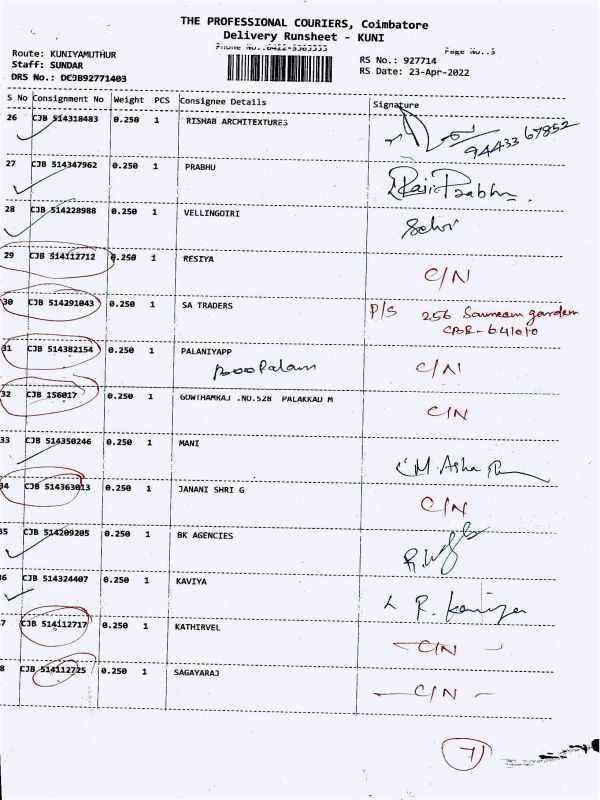 THE PROFESSIONAL COURIERS, Coimbatore
Delivery Runsheet - KUNI
Route: KUNIYAMUTHUR
Staff: SUNDAR
DRS No.: DC9B92771403
Page No.:3
RS No.: 927714
RS Date: 23-Apr-2022
S No Consignment No Weight PCS Consignee Details Signature
26 CJB 514318483 0.250 1 RISHAB ARCHITEXTURES
94433 67852
27 CJB 514347962 0.250 1 PRABHU
Raji Prabhu.
28 CJB 514228988 0.250 1 VELLINGOIRI
29 CJB 514112712 0.250 1 RESIYA C/N
30 CJB 514291043 0.250 1 SA TRADERS P/S 256
641010
31 CJB 514382154 0.250 1 PALANIYAPP C/N
32 CJB 156017 0.250 1 GOWTHAMRAJ .NO.528 PALAKKAD M C/N
33 CJB 514350246 0.250 1 MANI
M Asha
34 CJB 514363013 0.250 1 JANANI SHRI G C/N
35 CJB 514209205 0.250 1 BK AGENCIES
36 CJB 514324407 0.250 1 KAVIYA
R. Kaviya
7 CJB 514112717 0.250 1 KATHIRVEL - C/N -
8 CJB 514112725 0.250 1 SAGAYARAJ - C/N -
7